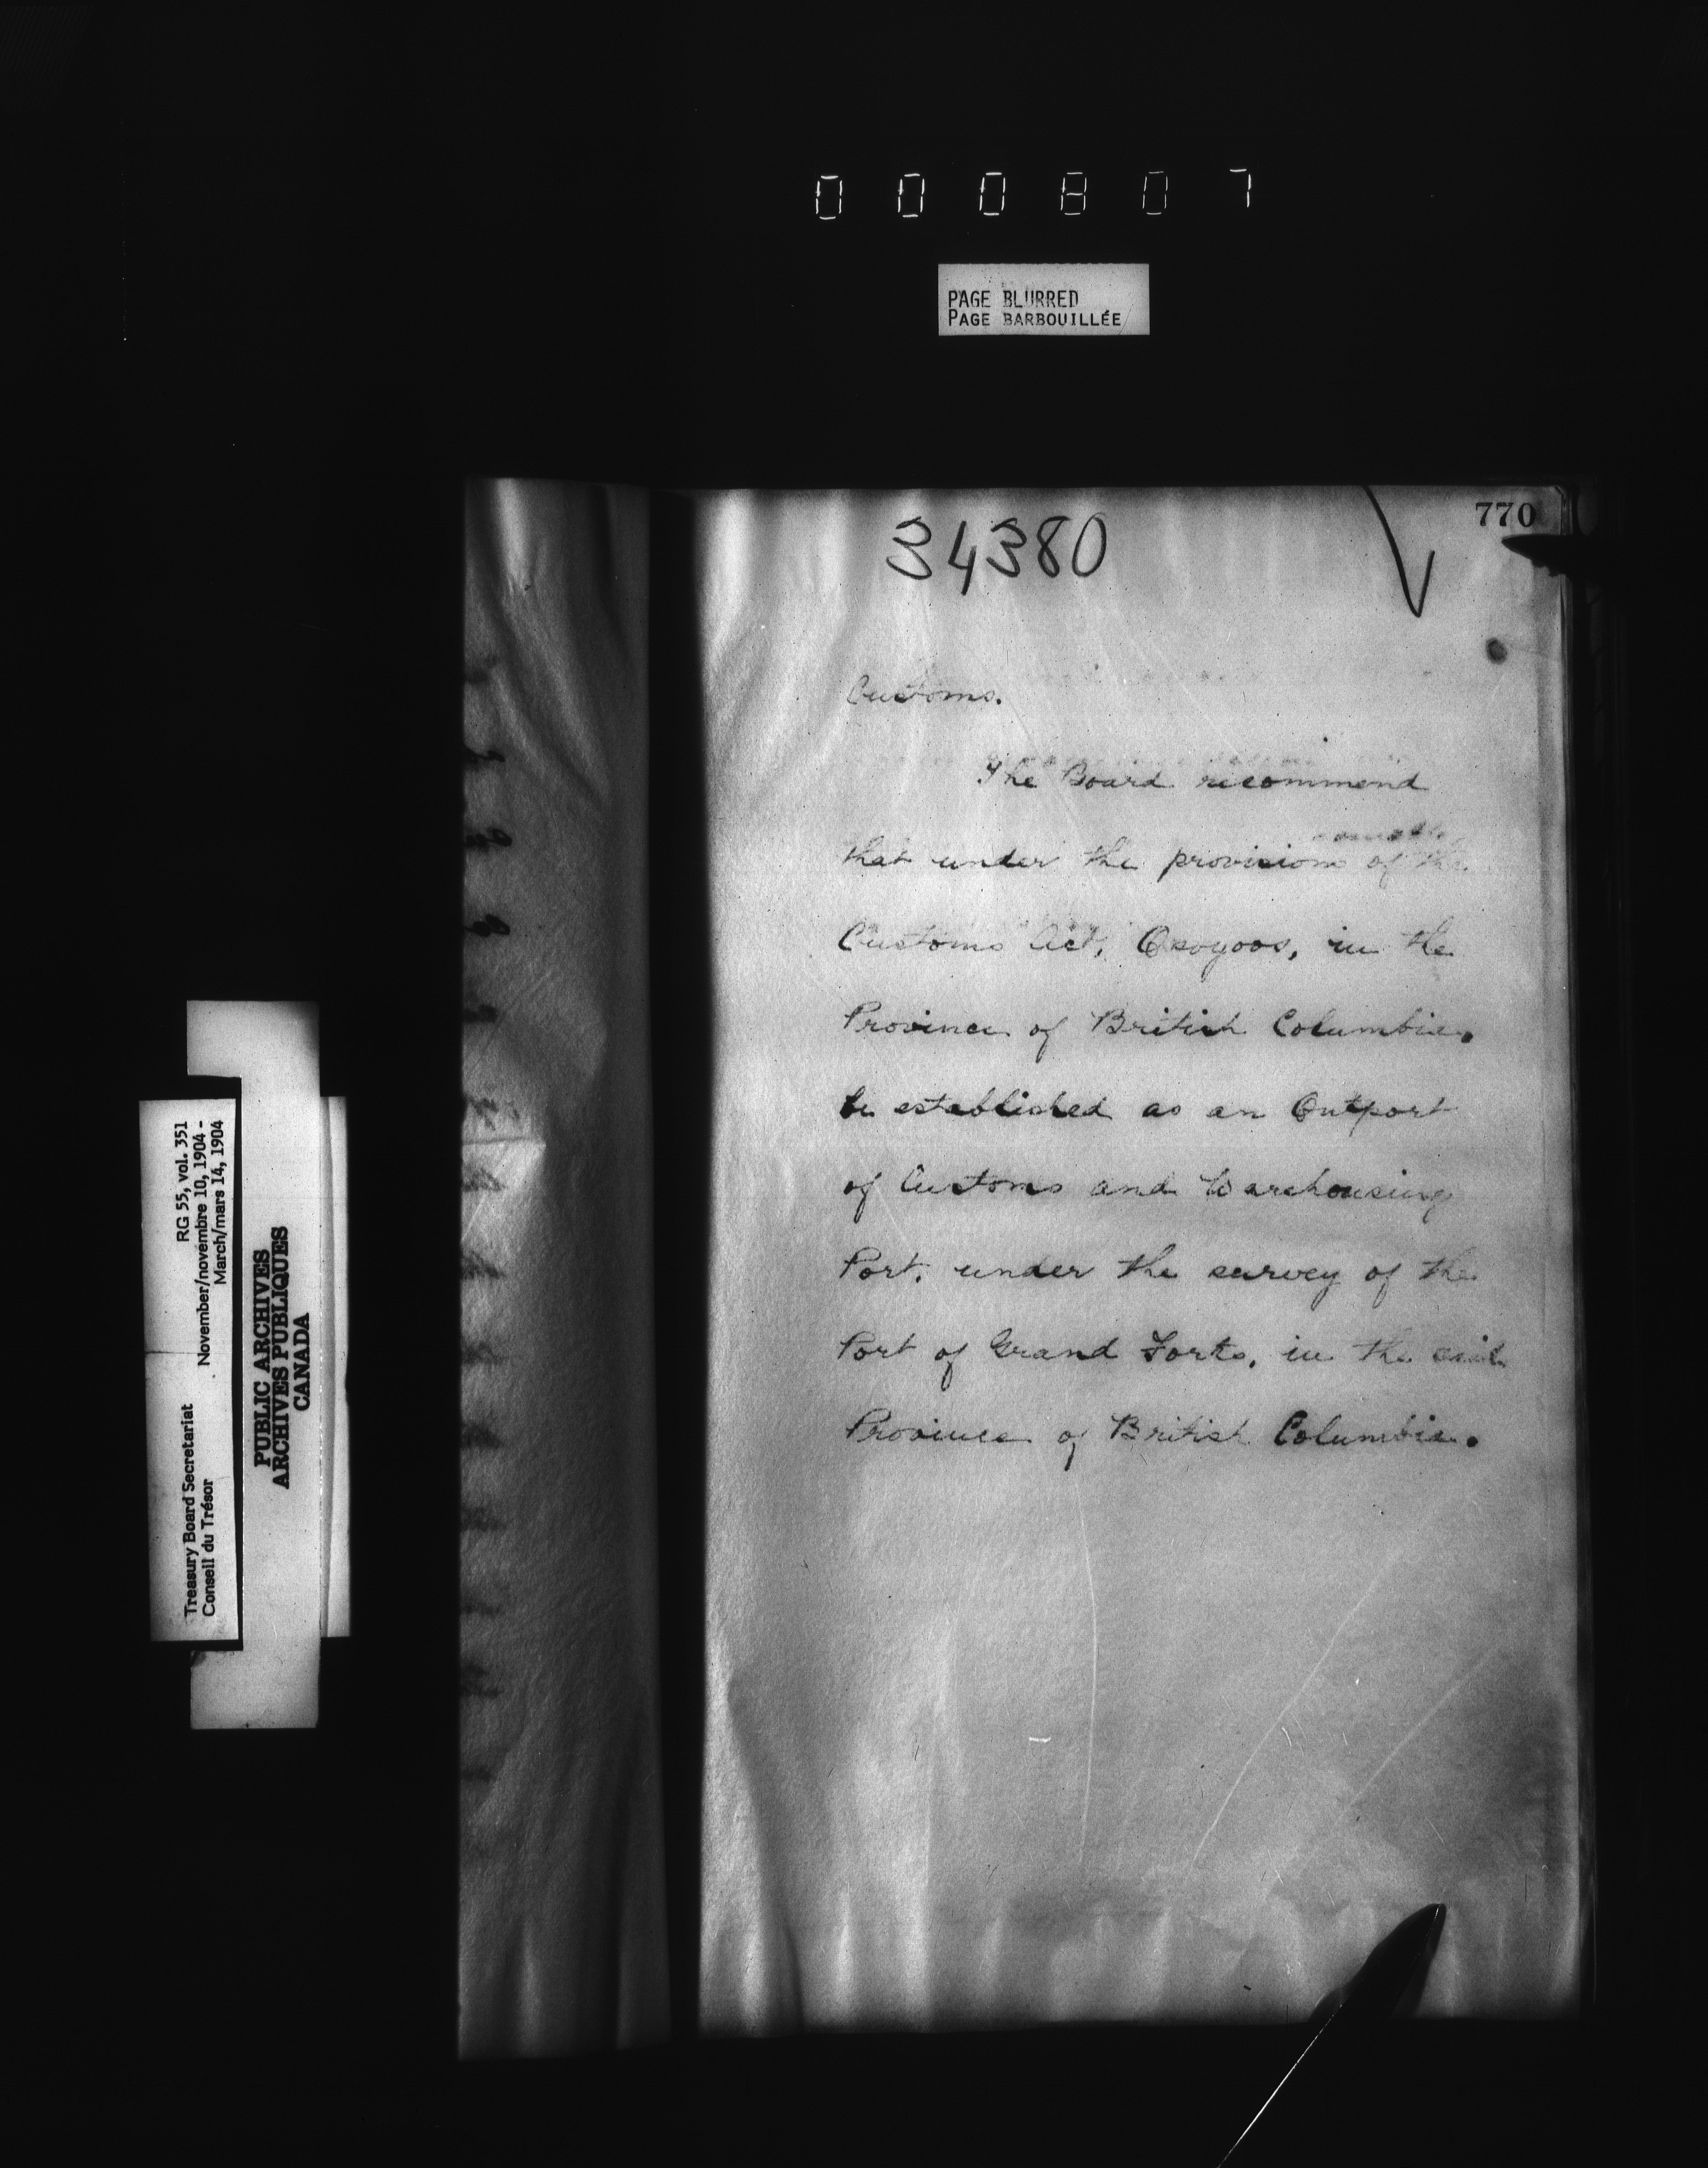 000807
PAGE BLURRED
PAGE BARBOUILLÉE
770
34380
Customs.
The Board recommend
that under the provisions of the
Customs Act, Osoyoos, in the
Province of British Columbia,
be established as an Outport
of Customs and Warehousing
Port, under the survey of the
Port of Grand Forks, in the said
Province of British Columbia.
Treasury Board Secretariat RG 55, vol. 351
Conseil du Trésor November/novembre 10, 1904 -
March/mars 14, 1904
PUBLIC ARCHIVES
ARCHIVES PUBLIQUES
CANADA